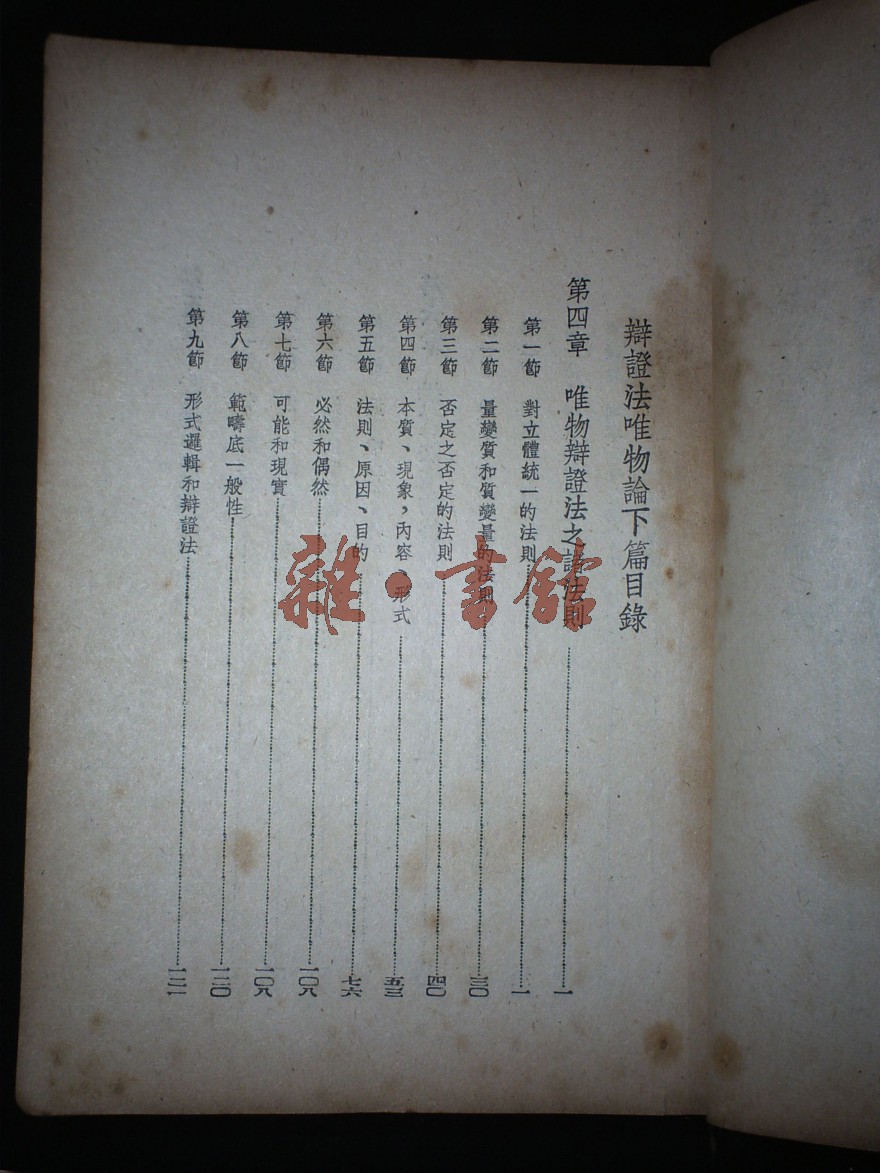 辯證法唯物論下篇目錄
第四章 唯物辯證法之諸法則 一
第一節 對立體統一的法則 一
第二節 量變質和質變量的法則 三〇
第三節 否定之否定的法則 四〇
第四節 本質、現象，內容、形式 五三
第五節 法則、原因、目的 七六
第六節 必然和偶然 一〇八
第七節 可能和現實 一〇八
第八節 範疇底一般性 一二〇
第九節 形式邏輯和辯證法 一二一
雜·書館